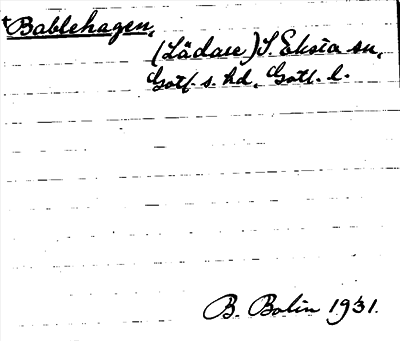 †Bablehagen,
(Lådase) S. Eksta sn,
Gotl. s. hd, Gotl. l.
B. Bolin 1931.